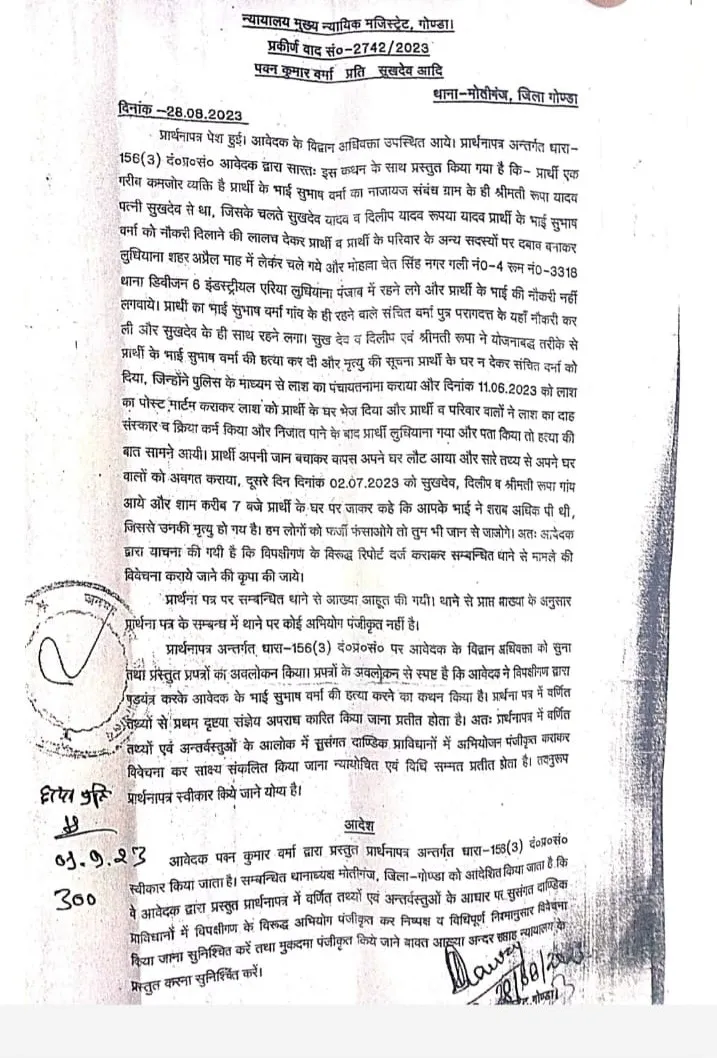 न्यायालय मुख्य न्यायिक मजिस्ट्रेट, गोण्डा।
प्रकीर्ण वाद सं०-2742/2023
पवन कुमार वर्मा प्रति सुखदेव आदि
थाना-मोतीगंज, जिला गोण्डा
दिनांक -28.08.2023
प्रार्थनापत्र पेश हुई। आवेदक के विद्वान अधिवक्ता उपस्थित आये। प्रार्थनापत्र अन्तर्गत धारा-
156(3) दं०प्र०सं० आवेदक द्वारा सारतः इस कथन के साथ प्रस्तुत किया गया है कि- प्रार्थी एक
गरीब कमजोर व्यक्ति है प्रार्थी के भाई सुभाष वर्मा का नाजायज संबंध ग्राम के ही श्रीमती रूपा यादव
पत्नी सुखदेव से था, जिसके चलते सुखदेव यादव व दिलीप यादव रूपया यादव प्रार्थी के भाई सुभाष
वर्मा को नौकरी दिलाने की लालच देकर प्रार्थी व प्रार्थी के परिवार के अन्य सदस्यों पर दबाव बनाकर
लुधियाना शहर अप्रैल माह में लेकर चले गये और मोहल्ला चेत सिंह नगर गली नं0-4 रूम नं0-3318
थाना डिवीजन 6 इंडस्ट्रीयल एरिया लुधियाना पंजाब में रहने लगे और प्रार्थी के भाई की नौकरी नहीं
लगवाये। प्रार्थी का भाई सुभाष वर्मा गांव के ही रहने वाले संचित वर्मा पुत्र परागदत्त के यहाँ नौकरी कर
ली और सुखदेव के ही साथ रहने लगा। सुख देव व दिलीप एवं श्रीमती रूपा ने योजनाबद्ध तरीके से
प्रार्थी के भाई सुभाष वर्मा की हत्या कर दी और मृत्यु की सूचना प्रार्थी के घर न देकर संचित वर्मा को
दिया, जिन्होंने पुलिस के माध्यम से लाश का पंचायतनामा कराया और दिनांक 11.06.2023 को लाश
का पोस्ट मार्टम कराकर लाश को प्रार्थी के घर भेज दिया और प्रार्थी व परिवार वालों ने लाश का दाह
संस्कार व क्रिया कर्म किया और निजात पाने के बाद प्रार्थी लुधियाना गया और पता किया तो हत्या की
बात सामने आयी। प्रार्थी अपनी जान बचाकर वापस अपने घर लौट आया और सारे तथ्य से अपने घर
वालों को अवगत कराया, दूसरे दिन दिनांक 02.07.2023 को सुखदेव, दिलीप व श्रीमती रूपा गांव
आये और शाम करीब 7 बजे प्रार्थी के घर पर जाकर कहे कि आपके भाई ने शराब अधिक पी थी,
जिससे उनकी मृत्यु हो गय है। हम लोगों को फर्जी फंसाओगे तो तुम भी जान से जाओगे। अतः आवेदक
द्वारा याचना की गयी है कि विपक्षीगण के विरूद्ध रिपोर्ट दर्ज कराकर सम्बन्धित थाने से मामले की
विवेचना कराये जाने की कृपा की जाये।
प्रार्थना पत्र पर सम्बन्धित थाने से आख्या आहूत की गयी। थाने से प्राप्त आख्या के अनुसार
प्रार्थना पत्र के सम्बन्ध में थाने पर कोई अभियोग पंजीकृत नहीं है।
प्रार्थनापत्र अन्तर्गत, धारा-156(3) दं०प्र०सं० पर आवेदक के विद्वान अधिवक्ता को सुना
तथा प्रस्तुत प्रपत्रों का अवलोकन किया। प्रपत्रों के अवलोकन से स्पष्ट है कि आवेदक ने विपक्षीगण द्वारा
षडयंत्र करके आवेदक के भाई सुभाष वर्मा की हत्या करने का कथन किया है। प्रर्थना पत्र में वर्णित
तथ्यों से प्रथम दृष्टया संज्ञेय अपराध कारित किया जाना प्रतीत होता है। अतः प्रार्थनापत्र में वर्णित
तथ्यों एवं अन्तर्वस्तुओं के आलोक में सुसंगत दाण्डिक प्राविधानों में अभियोजन पंजीकृत कराकर
विवेचना कर साक्ष्य संकलित किया जाना न्यायोचित एवं विधि सम्मत प्रतीत होता है। तदनुरूप
प्रार्थनापत्र स्वीकार किये जाने योग्य है।
आदेश
आवेदक पवन कुमार वर्मा द्वारा प्रस्तुत प्रार्थनापत्र अन्तर्गत धारा-156(3) दं०प्र०सं०
स्वीकार किया जाता है। सम्बन्धित थानाध्यक्ष मोतीगंज, जिला-गोण्डा को आदेशित किया जाता है कि
वे आवेदक द्वारा प्रस्तुत प्रार्थनापत्र में वर्णित तथ्यों एवं अन्तर्वस्तुओं के आधार पर सुसंगत दाण्डिक
प्राविधानों में विपक्षीगण के विरूद्ध अभियोग पंजीकृत कर निष्पक्ष व विधिपूर्ण नियमानुसार विवेचना
किया जाना सुनिश्चित करें तथा मुकदमा पंजीकृत किये जाने बावत आख्या अन्दर सप्ताह न्यायालय के
प्रस्तुत करना सुनिश्चित करें।
01.9.23
300
28/08/2023
गोण्डा।